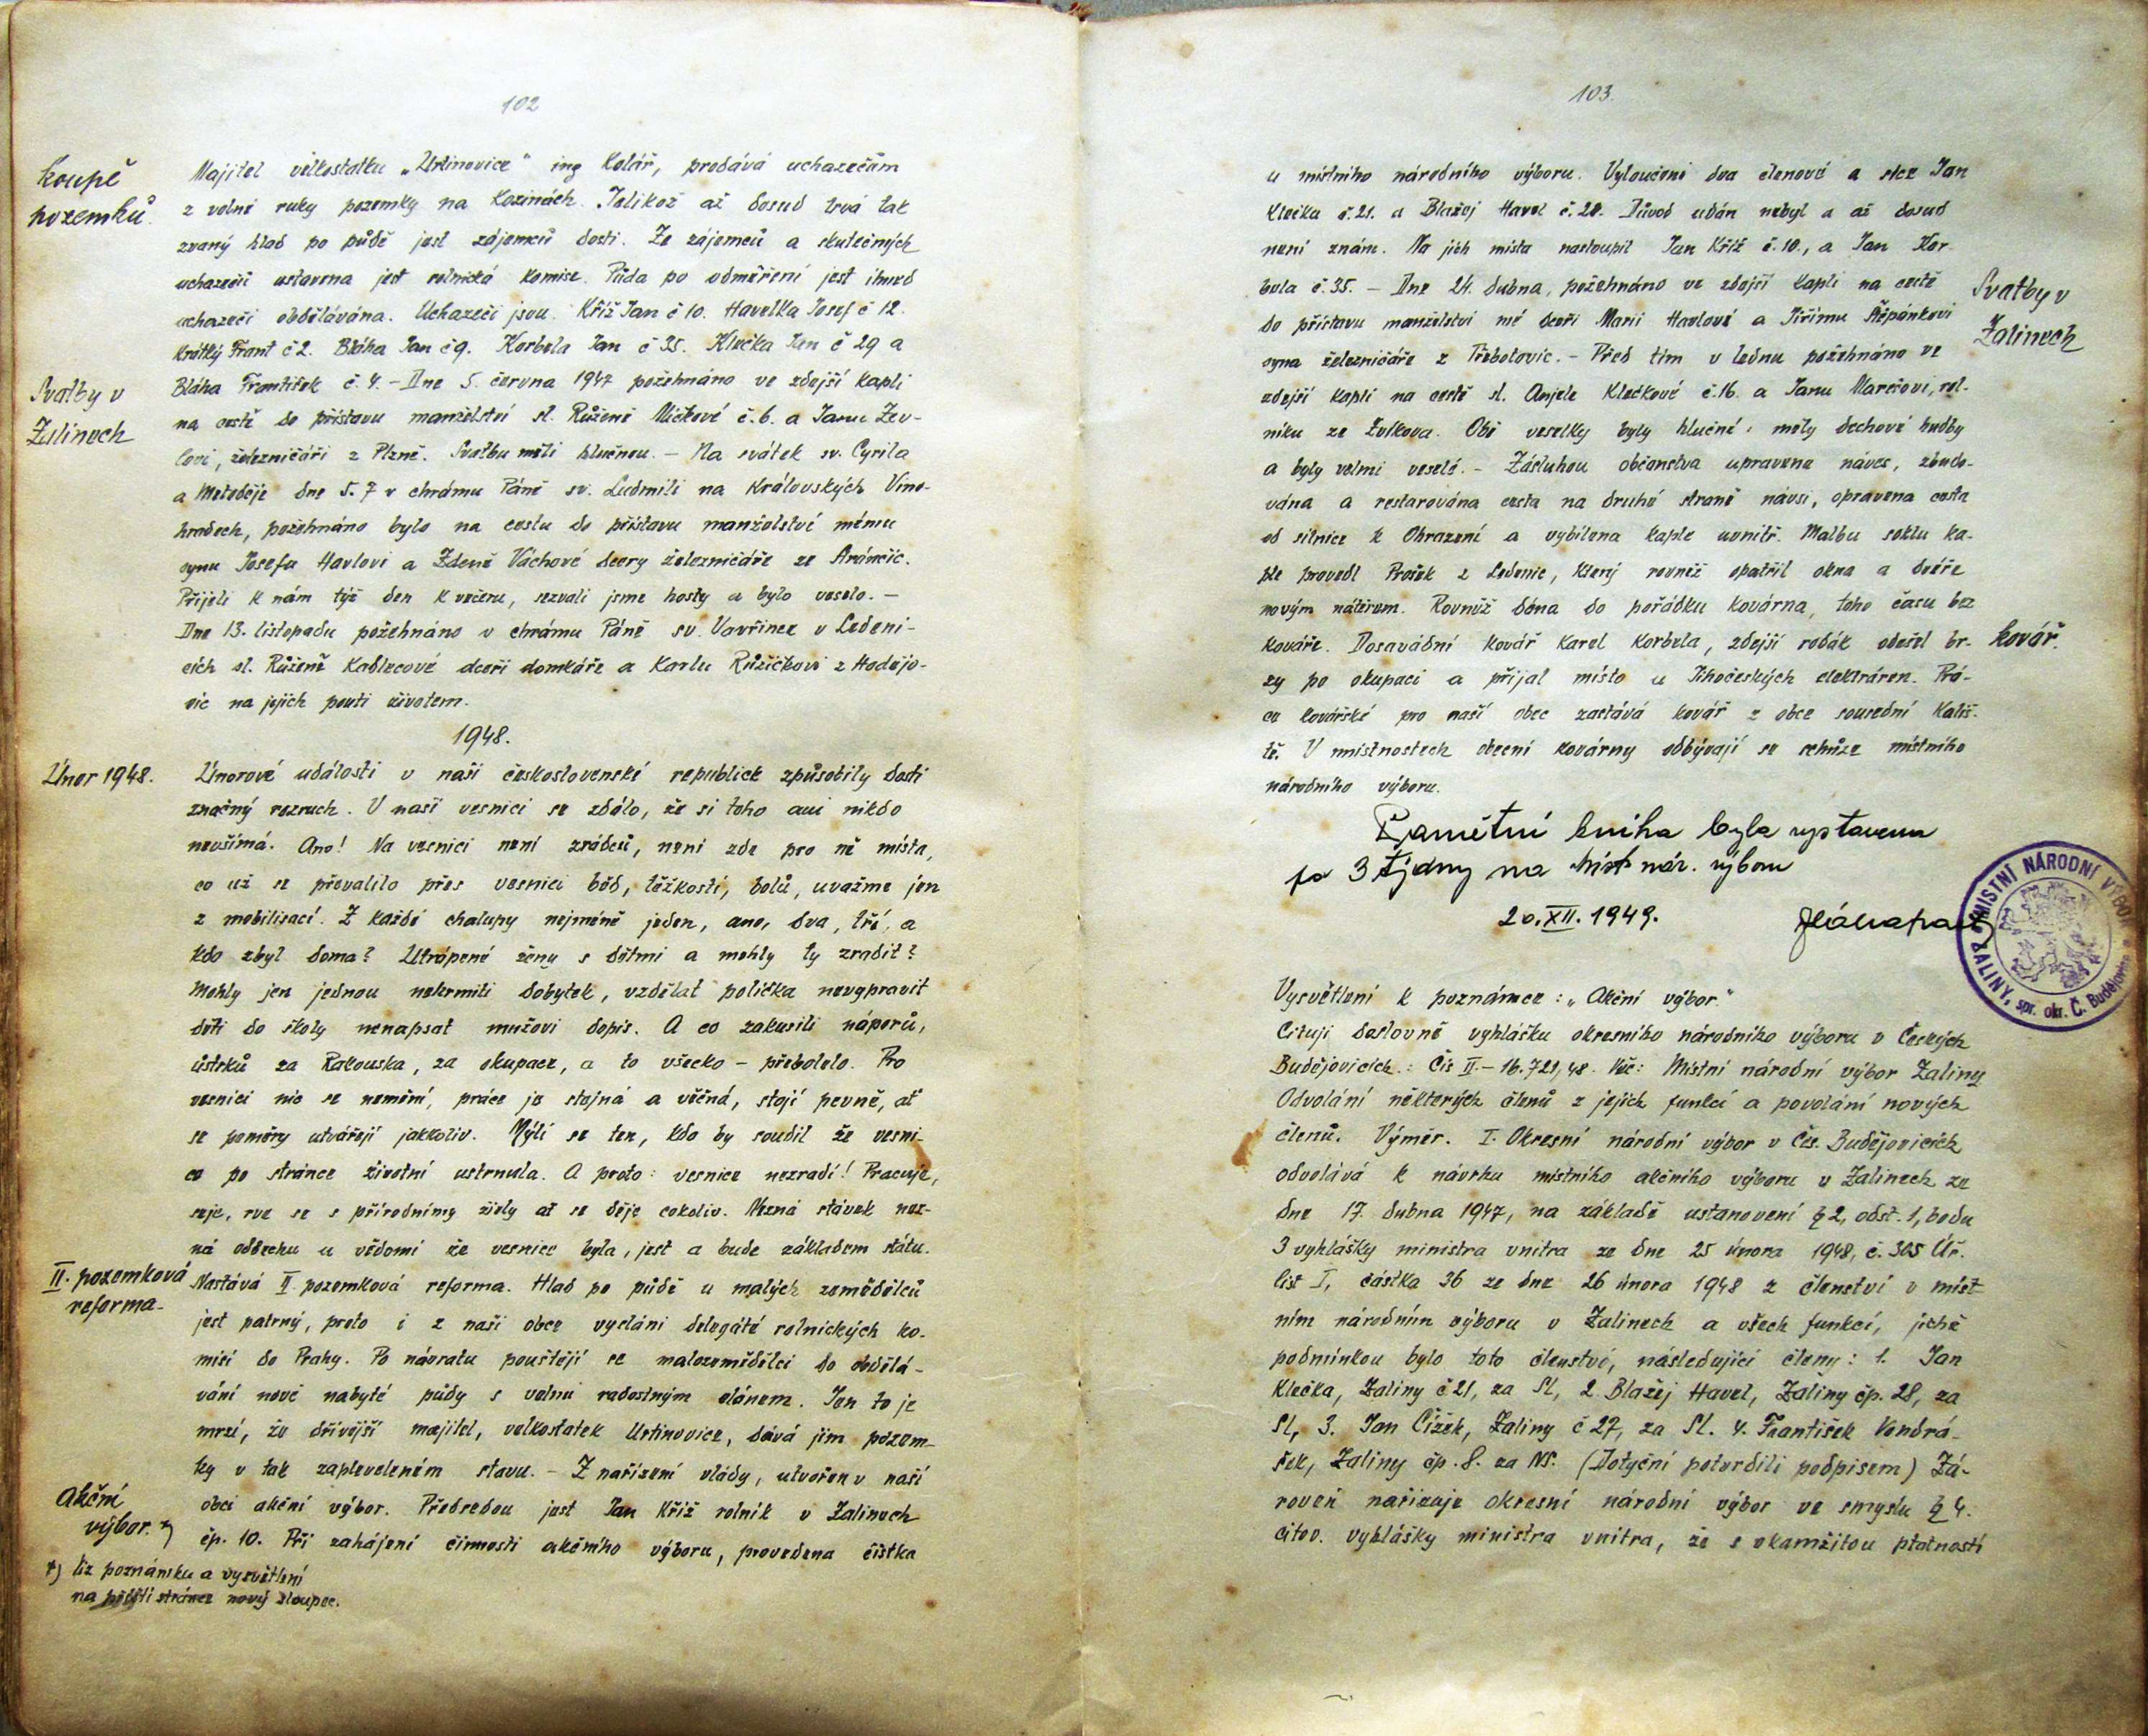 102
koupě
pozemků.
Majitel velkostatku „Urtinovice" ing Kolář, prodává uchazečům
z volné ruky pozemky na Kozinách. Jelikož až dosud trvá tak
zvaný hlad po půdě jest zájemců dosti. Ze zájemců a skutečných
uchazečů ustavena jest rolnická komise. Půda po odměření jest ihned
uchazeči obdělávána. Uchazeči jsou. Kříž Jan č 10. Havelka Josef č 12.
Krátký Frant č 2. Bláha Jan č 9. Korbela Jan č 35. Klečka Jan č 29 a
Svatby v
Žalinech
Bláha František č. 4. – Dne 5. června 1947 požehnáno ve zdejší kapli
na cestě do přístavu manželství sl. Růženě Mičkové č. 6. a Janu Zev-
lovi, železničáři z Plzně. Svatbu měli hlučnou. – Na svátek sv. Cyrila
a Metoděje dne 5. 7 v chrámu Páně sv. Ludmili na Královských Vino-
hradech, požehnáno bylo na cestu do přístavu manželství mému
synu Josefu Havlovi a Zdeně Váchové dcery železničáře ze
Přijeli k nám týž den k večeru, sezvali jsme hosty a bylo veselo. –
Dne 13. listopadu požehnáno v chrámu Páně sv. Vavřince v Ledeni-
cích sl. Růženě Kadlecové dceři domkáře a Karlu Růžičkovi z Hodějo-
vic na jejich pouti životem.
1948.
Únor 1948.
Únorové události v naši československé republice způsobily dosti
značný rozruch. V naší vesnici se zdálo, že si toho ani nikdo
nevšímá. Ano! Na vesnici není zrádců, není zde pro ně místa,
co už se převalilo přes vesnici běd, těžkostí, bolů, uvažme jen
z mobilisací. Z každé chalupy nejméně jeden, ano, dva, tří, a
kdo zbyl doma? Utrápené ženy s dětmi a mohly ty zradit?
Mohly jen jednou nekrmiti dobytek, vzdělat políčka nevypravit
děti do školy nenapsat mužovi dopis. A co zakusili náporů,
ústrků za Rakouska, za okupace, a to všecko – přebolelo. Pro
vesnici nic se nemění, práce je stejná a věčná, stojí pevně, ať
se poměry utvářejí jakkoliv. Mýlí se ten, kdo by soudil že vesni-
ce po stránce životní ustrnula. A proto: vesnice nezradí! Pracuje,
seje, rve se s přírodnímy živly ať se děje cokoliv. Nezná stávek nez-
ná oddechu u vědomí že vesnice byla, jest a bude základem státu.
II. pozemková
reforma-
Nastává II pozemková reforma. Hlad po půdě u malých zemědělců
jest patrný, proto i z naši obce vysláni delegáté rolnických ko-
misí do Prahy. Po návratu pouštějí se malozemědělci do obdělá-
vání nově nabyté půdy s velmi radostným elánem. Jen to je
mrzí, že dřívější majitel, velkostatek Urtinovice, dává jim pozem-
ky v tak zapleveleném stavu. – Z nařízení vlády, utvořen v naší
Akční
výbor. *)
obci akční výbor. Předsedou jest Jan Kříž rolník v Žalinech
čp. 10. Při zahájení činnosti akčního výboru, provedena čistka
*) Viz poznámku a vysvětlení
na příští stránce nový sloupec.
103.
u místního národního výboru. Vyloučeni dva členové a sice Jan
Klečka č. 21. a Blažej Havel č. 28. Důvod udán nebyl a až dosud
není znám. Na jich místa nastoupil Jan Kříž č. 10., a Jan Kor-
bela č. 35. – Dne 24. dubna, požehnáno ve zdejší kapli na cestě
Svatby v
Žalinech
do přístavu manželství mé dceři Marii Havlové a Jiřímu Štěpánkovi
syna železničáře z Třebotovic. – Před tím v lednu požehnáno ve
zdejší kapli na cestě sl. Anjele Klečkové č. 16. a Janu Marešovi, rol-
níku ze Zvíkova. Obě veselky byly hlučné, měly dechové hudby
a byly velmi veselé. – Zásluhou občanstva upravena náves, zbudo-
vána a restarována cesta na druhé straně návsi, opravena cesta
od silnice k Ohrazení a vybílena kaple uvnitř. Malbu soklu ka-
ple provedl Prošek z Ledenic, který rovněž opatřil okna a dvéře
novým nátěrem. Rovněž dána do pořádku kovárna, toho času bez
kováře. Dosavádní kovář Karel Korbela, zdejší rodák odešel br-
kovář.
zy po okupaci a přijal místo u Jihočeských elektráren. Prá-
ce kovářské pro naší obec zastává kovář z obce sousední Kališ-
tě. V místnostech obecní kovárny odbývají se schůze místního
národního výboru.
Pamětní kniha byla vystavena
po 3 týdny na Míst nár. výboru
20. XII. 1949.
MÍSTNÍ NÁRODNÍ VÝBOR
ŽALINY, spr. okr. Č. Budějovice
Vysvětlení k poznámce: „Akční výbor."
Cituji doslovně vyhlášku okresního národního výboru v Českých
Budějovicích.: Čís II. – 16.721/48. Věc: Místní národní výbor Žaliny
Odvolání některých členů z jejich funkcí a povolání nových
členů. Výměr. I. Okresní národní výbor v Čes. Budějovicích
odvolává k návrhu místního akčního výboru v Žalinech ze
dne 17. dubna 1947, na základě ustanovení § 2, odst. 1, bodu
3 vyhlášky ministra vnitra ze dne 25 února 1948, č. 305 Úř.
list I, částka 36 ze dne 26 února 1948 z členství v míst-
ním národním výboru v Žalinech a všech funkcí, jichž
podmínkou bylo toto členství, následující členy: 1. Jan
Klečka, Žaliny č 21, za Sl, 2. Blažej Havel, Žaliny čp. 28, za
Sl, 3. Jan Čížek, Žaliny č 27, za Sl. 4. František Vondrá-
šek, Žaliny čp. 8. za NS. (Dotyční potvrdili podpisem) Zá-
roveň nařizuje okresní národní výbor ve smyslu § 4.
citov. vyhlášky ministra vnitra, že s okamžitou platností